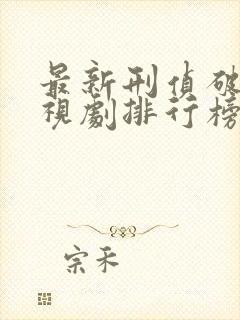 最新刑偵破
視劇排行榜
宗禾